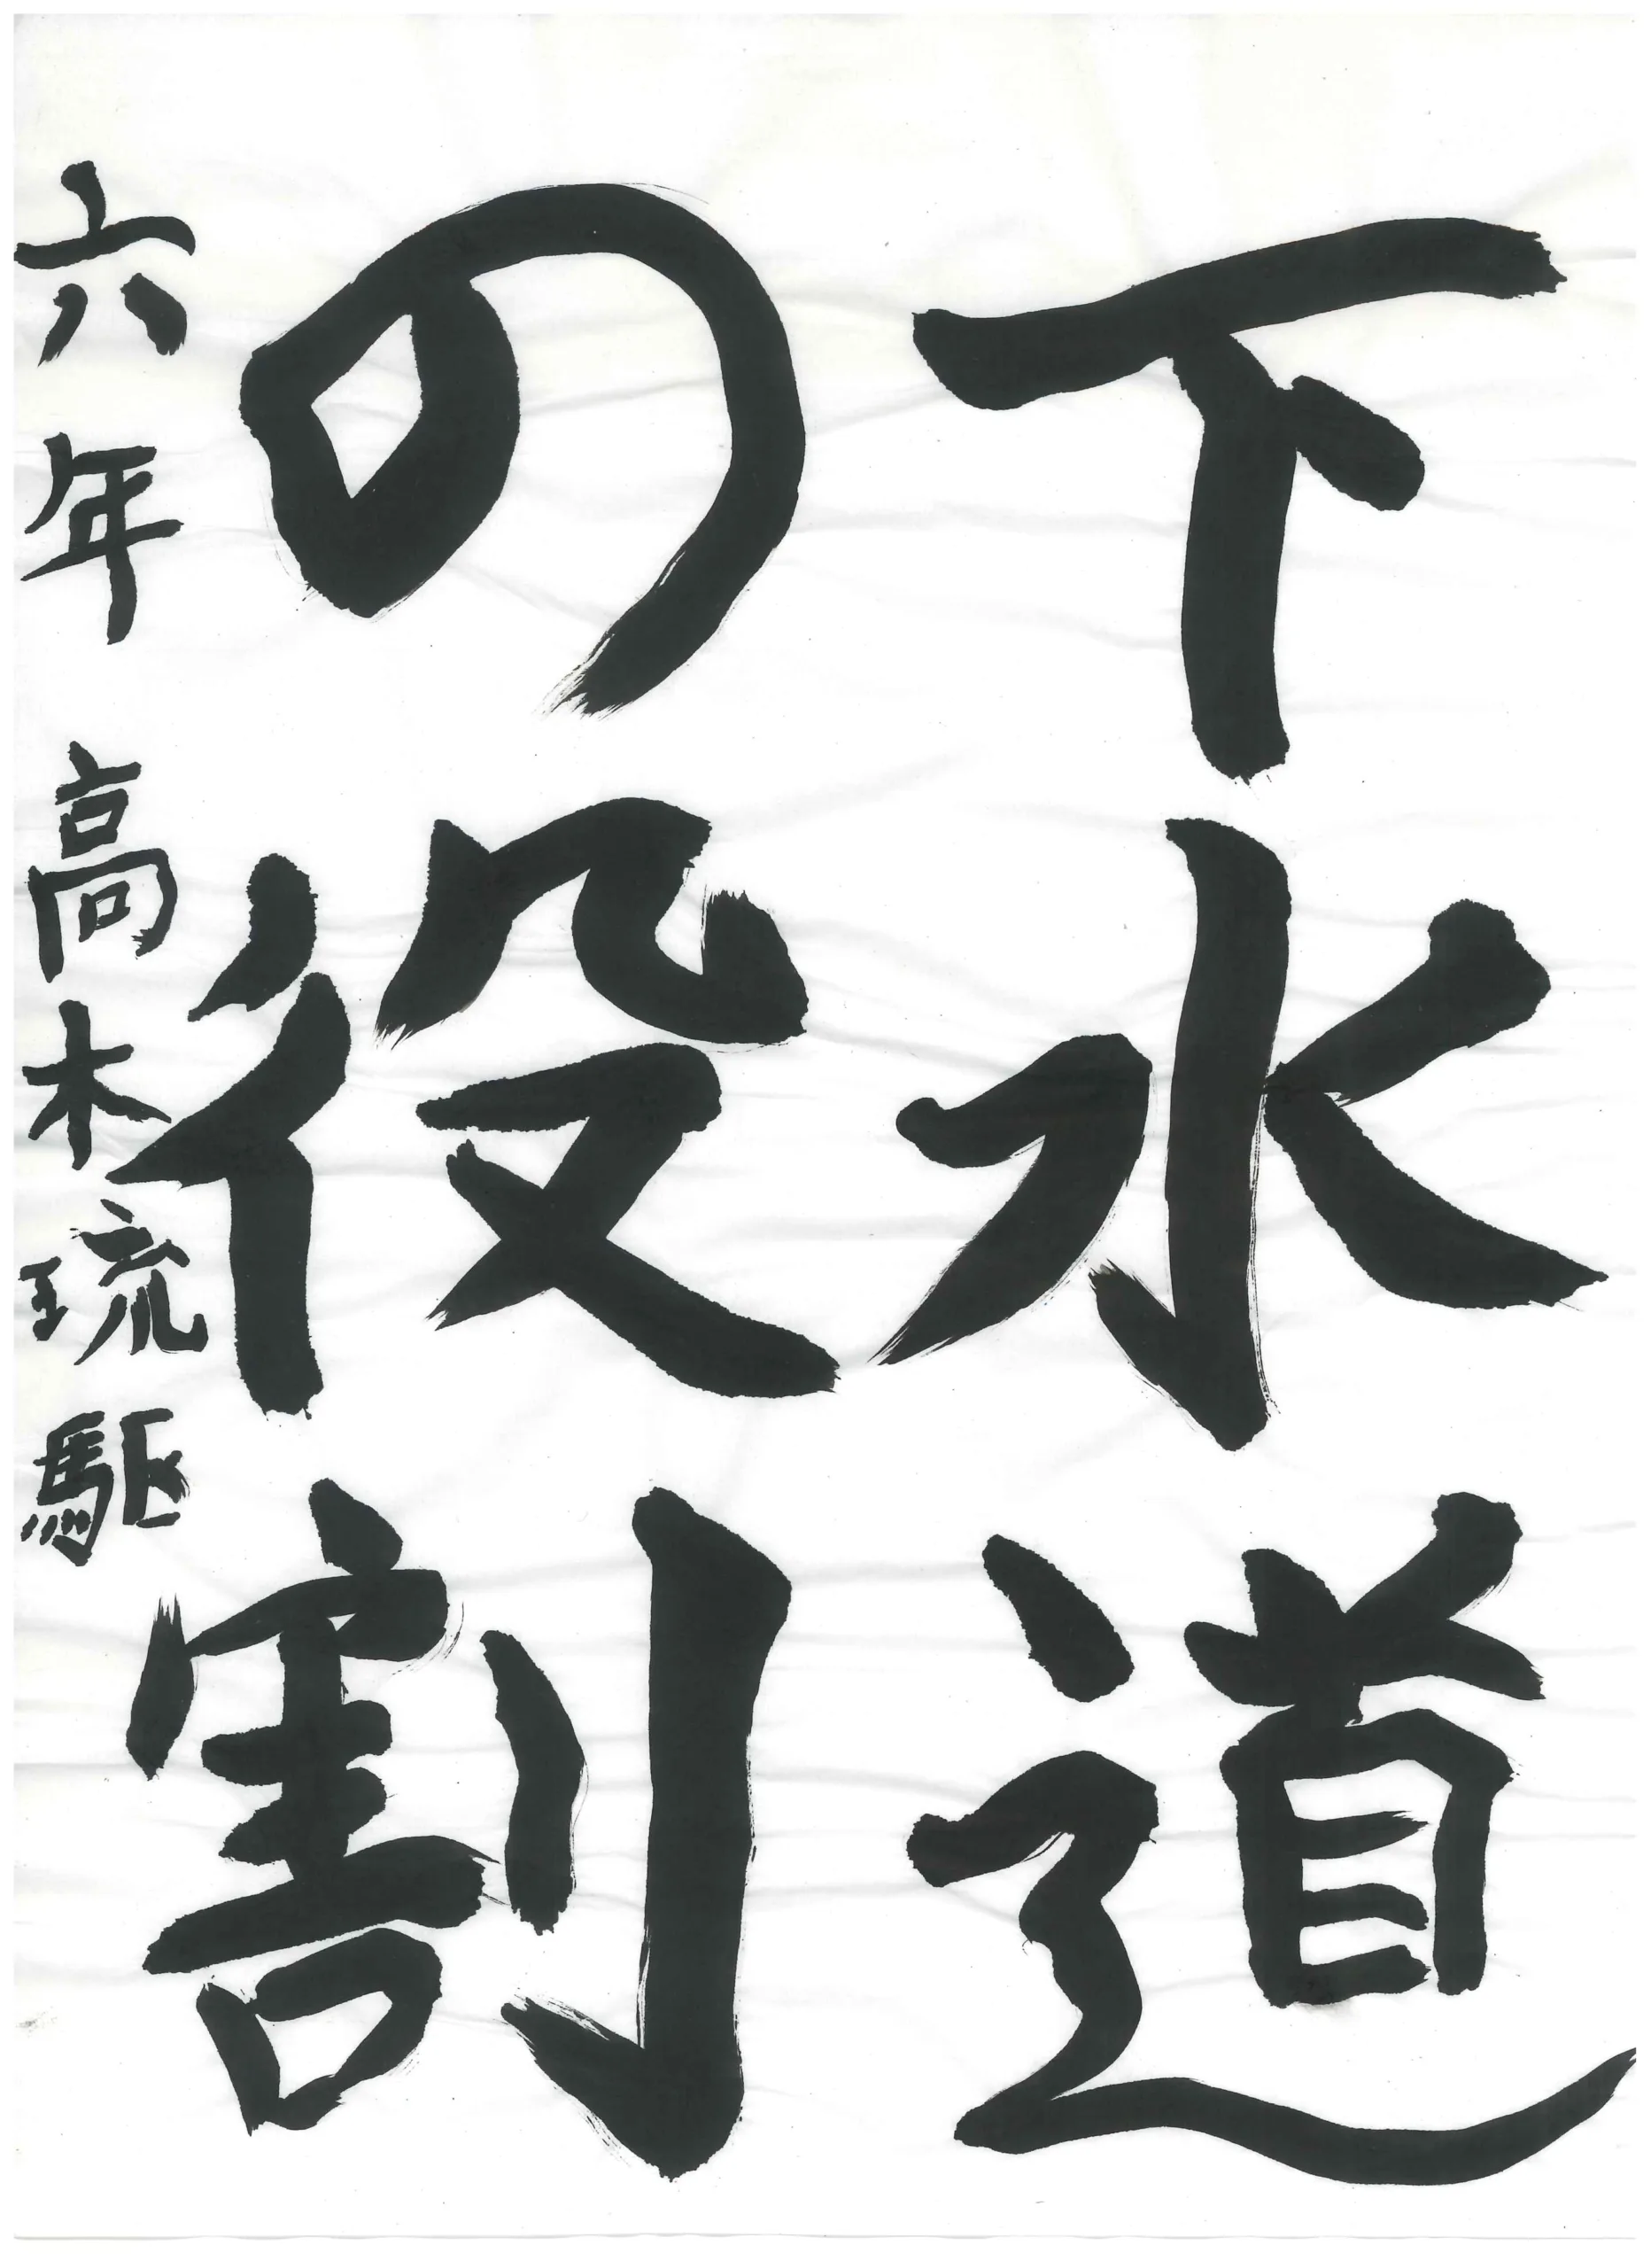 下水道
の役割
六年 高木琉駆